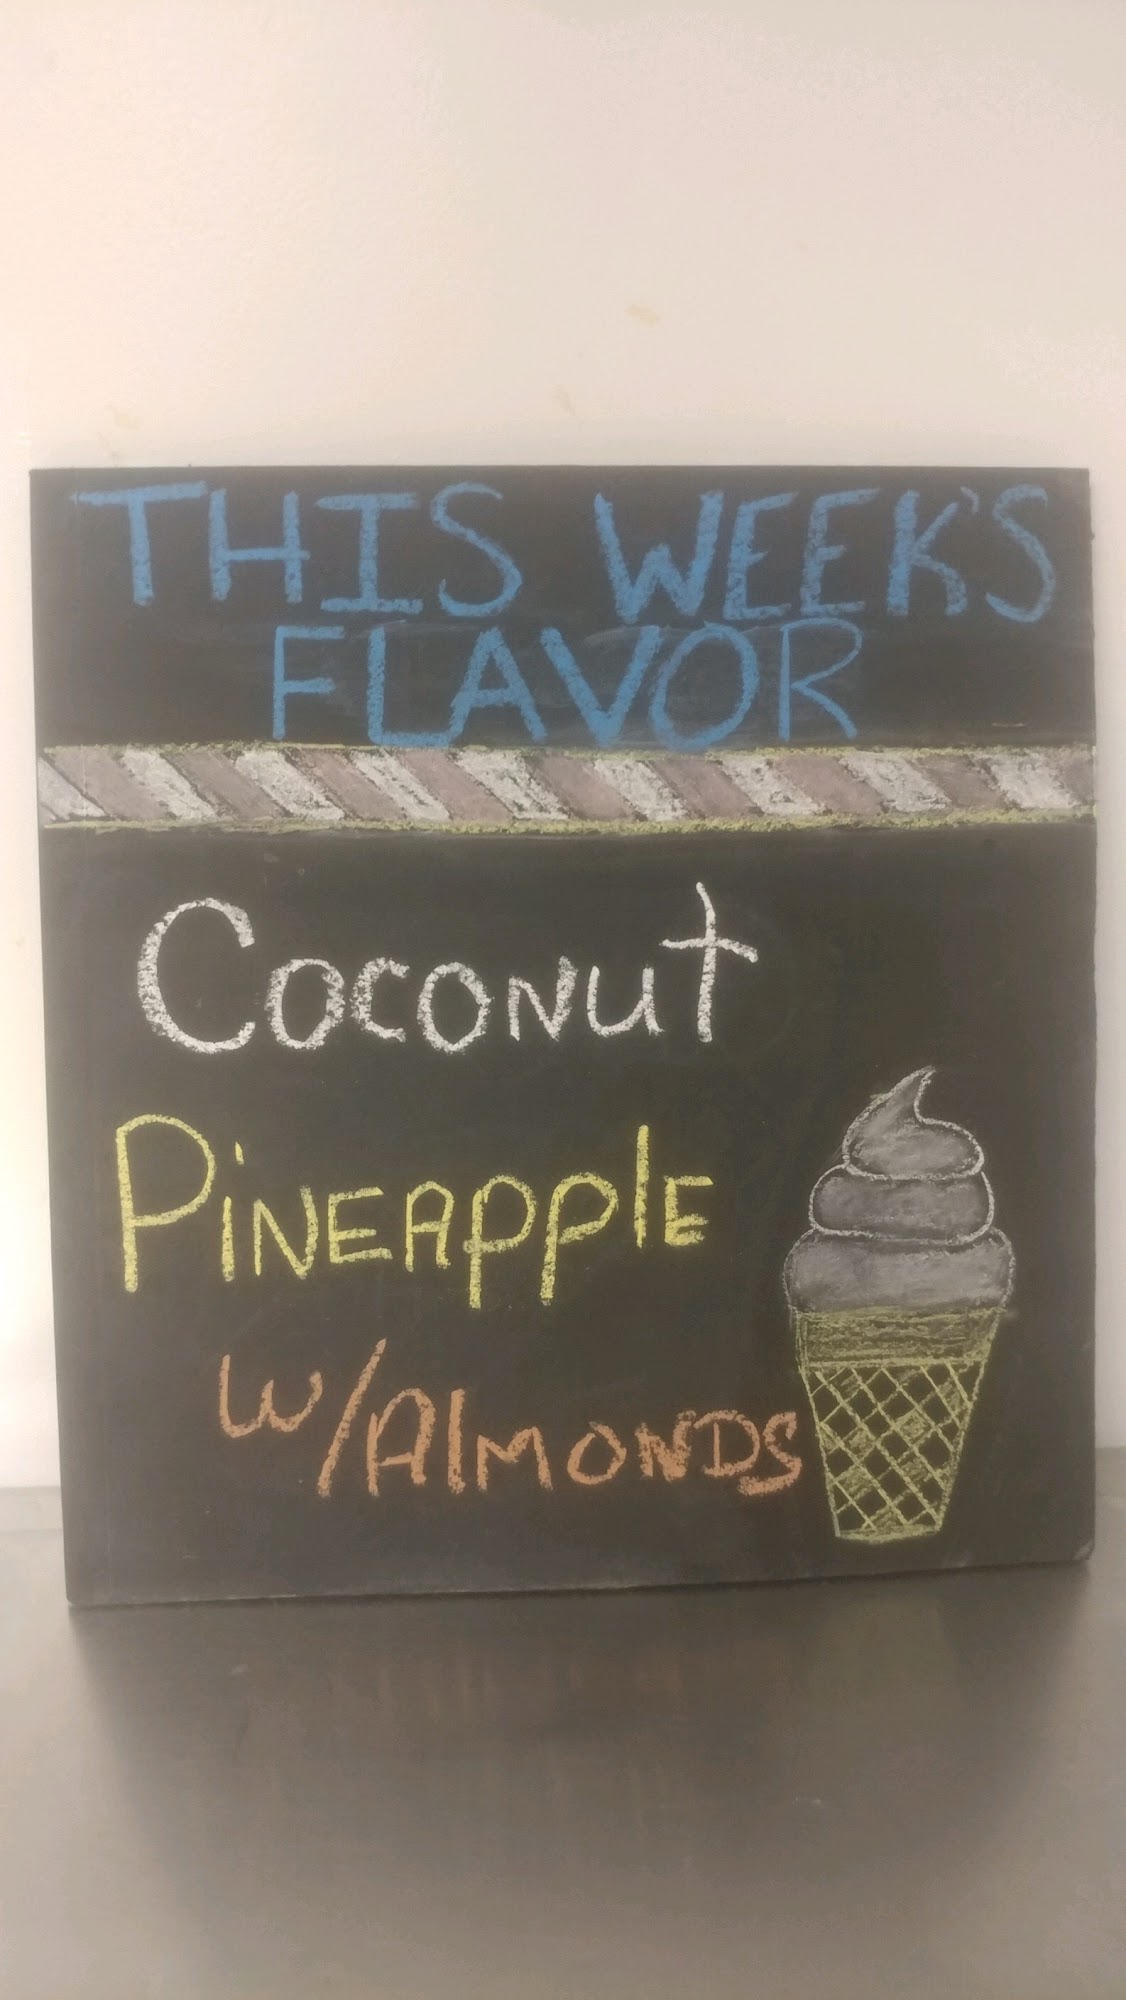 THIS WEEK'S
FLAVOR
COCONUT
PINEAPPLE
W/ALMONDS